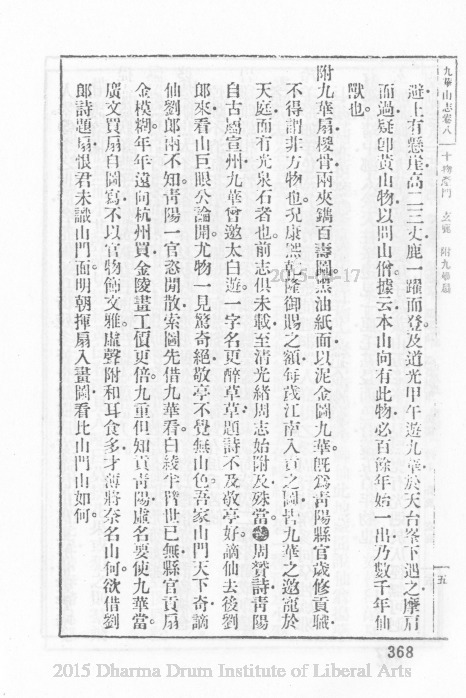 九華山志卷八　十物產門　玄鹿　附九華扇
五
避上有懸崖高二三丈鹿一躍而登及道光甲午遊九華於天台峯下遇之摩肩
而過疑卽黃山物以問山僧據云本山向有此物必百餘年始一出乃數千年仙
獸也
附九華扇櫻骨兩夾鐫百壽圖黑油紙面以泥金圖九華旣爲青陽縣官歲修貢職
不得謂非方物也況康熙乾隆御賜之額每茂江南入貢之圖皆九華之邀寵於
天庭面有光泉石者也前志俱未載至清光緒周志始附及殊當周贇詩青陽
自古屬宣州九華曾邀太白遊一字名更醉草草題詩不及敬亭好謫仙去後劉
郎來看山巨眼公論開尤物一見驚奇絕敬亭不覺無山色吾家山門天下奇謫
仙劉郎兩不知青陽一官恣閒散索圖先借九華看白綾半臂世已無縣官貢扇
金模糊年年遠向杭州買金陵畫工價更倍九重但知貢青陽虛名要使九華當
廣文買扇自圖寫不以官物飾文雅虛聲附和耳食多才薄將奈名山何欲借劉
郎詩題扇恨君未識山門面明朝揮扇入畫圖看比山門山如何
368
2015-04-17
2015 Dharma Drum Institute of Liberal Arts